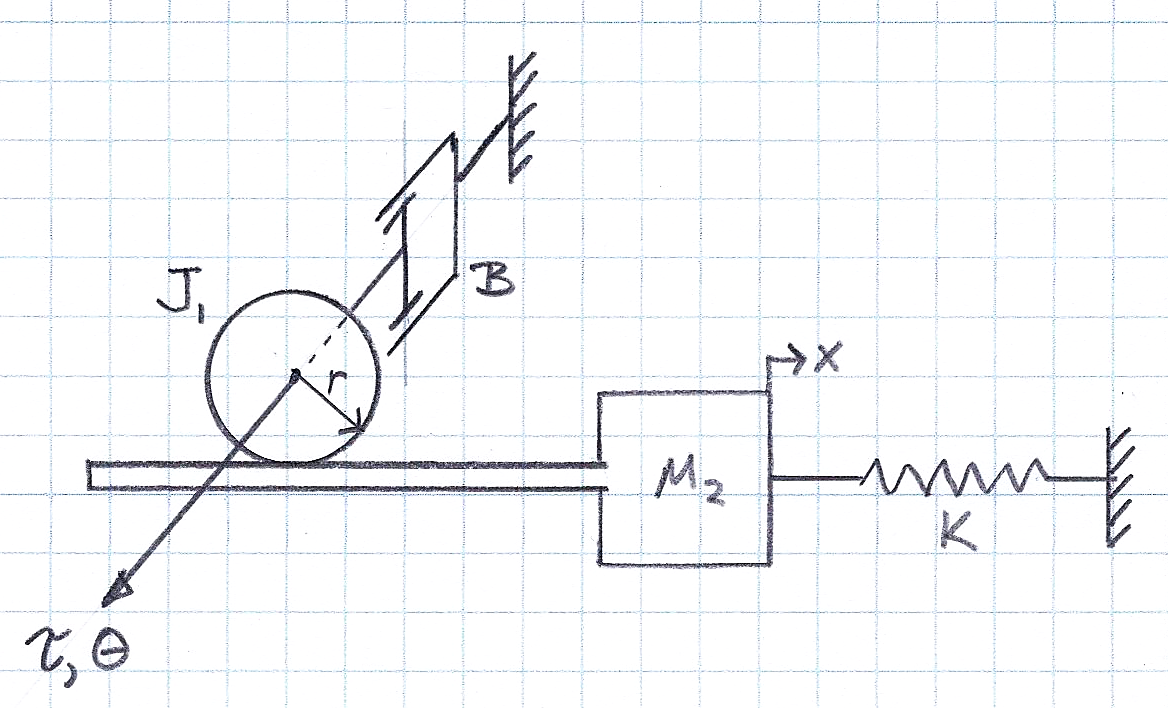 J₁
B
r
x
M₂
K
τ, θ